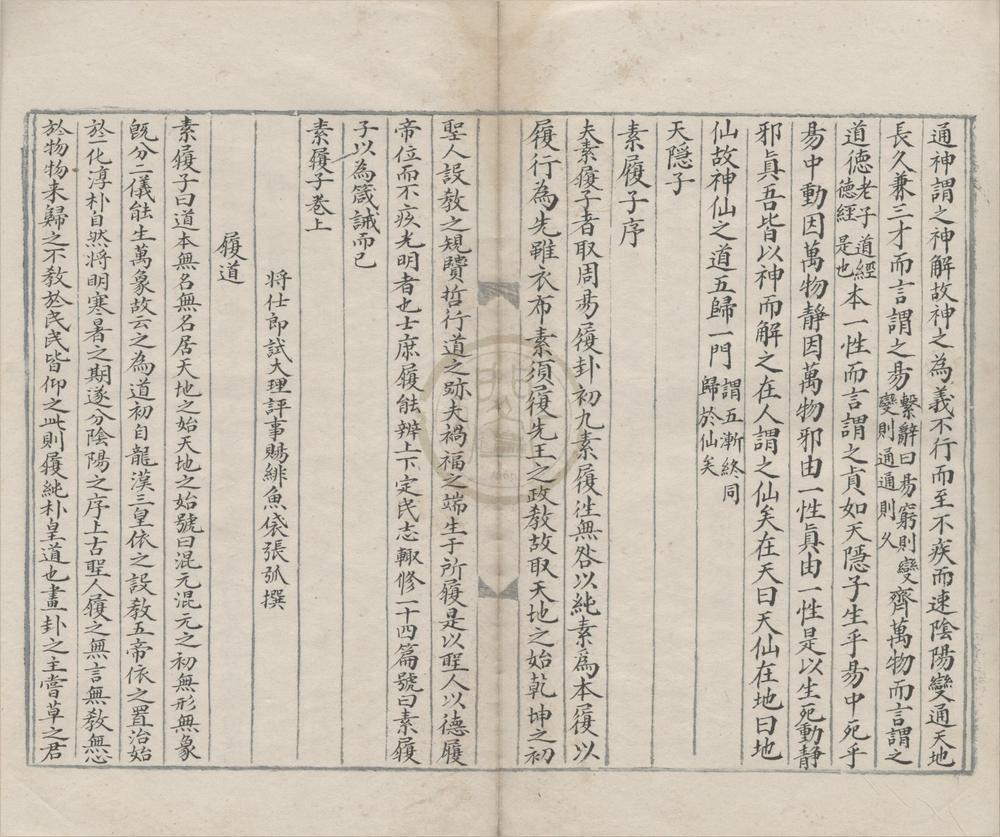 通神謂之神解故神之為義不行而至不疾而速陰陽變通天地
長久兼三才而言謂之昜繫辭曰昜窮則變變則通通則久齊萬物而言謂之
道德老子道經德經是也本一性而言謂之真如天隱子生乎昜中死乎
昜中動因萬物靜因萬物邪由一性眞由一性是以生死動静
邪眞吾皆以神而解之在人謂之仙矣在天曰天仙在地曰地
仙故神仙之道五歸一門謂五漸終同歸於仙矣
天隱子
素履子序
夫素履子者取周昜履卦初九素履徃無咎以純素爲本履以
履行為先雖衣布素須履先王之政教故取天地之始乾坤之初
聖人設教之規賢哲行道之跡夫禍福之端生于所履是以聖人以德履
帝位而不疚光明者也士庶履能辨上下定民志輙修一十四篇號曰素履
子以為箴誡而已
素履子卷上
將仕郎試大理評事賜緋魚袋張弧撰
履道
素履子曰道本無名無名居天地之始天地之始號曰混元混元之初無形無象
旣分二儀能生萬象故云之為道初自龍漢三皇依之設教五帝依之置治始
於一化淳朴自然將明寒暑之期遂分陰陽之序上古聖人履之無言無教無心
於物物来歸之不教於民民皆仰之此則履純朴皇道也畫卦之主嘗草之君